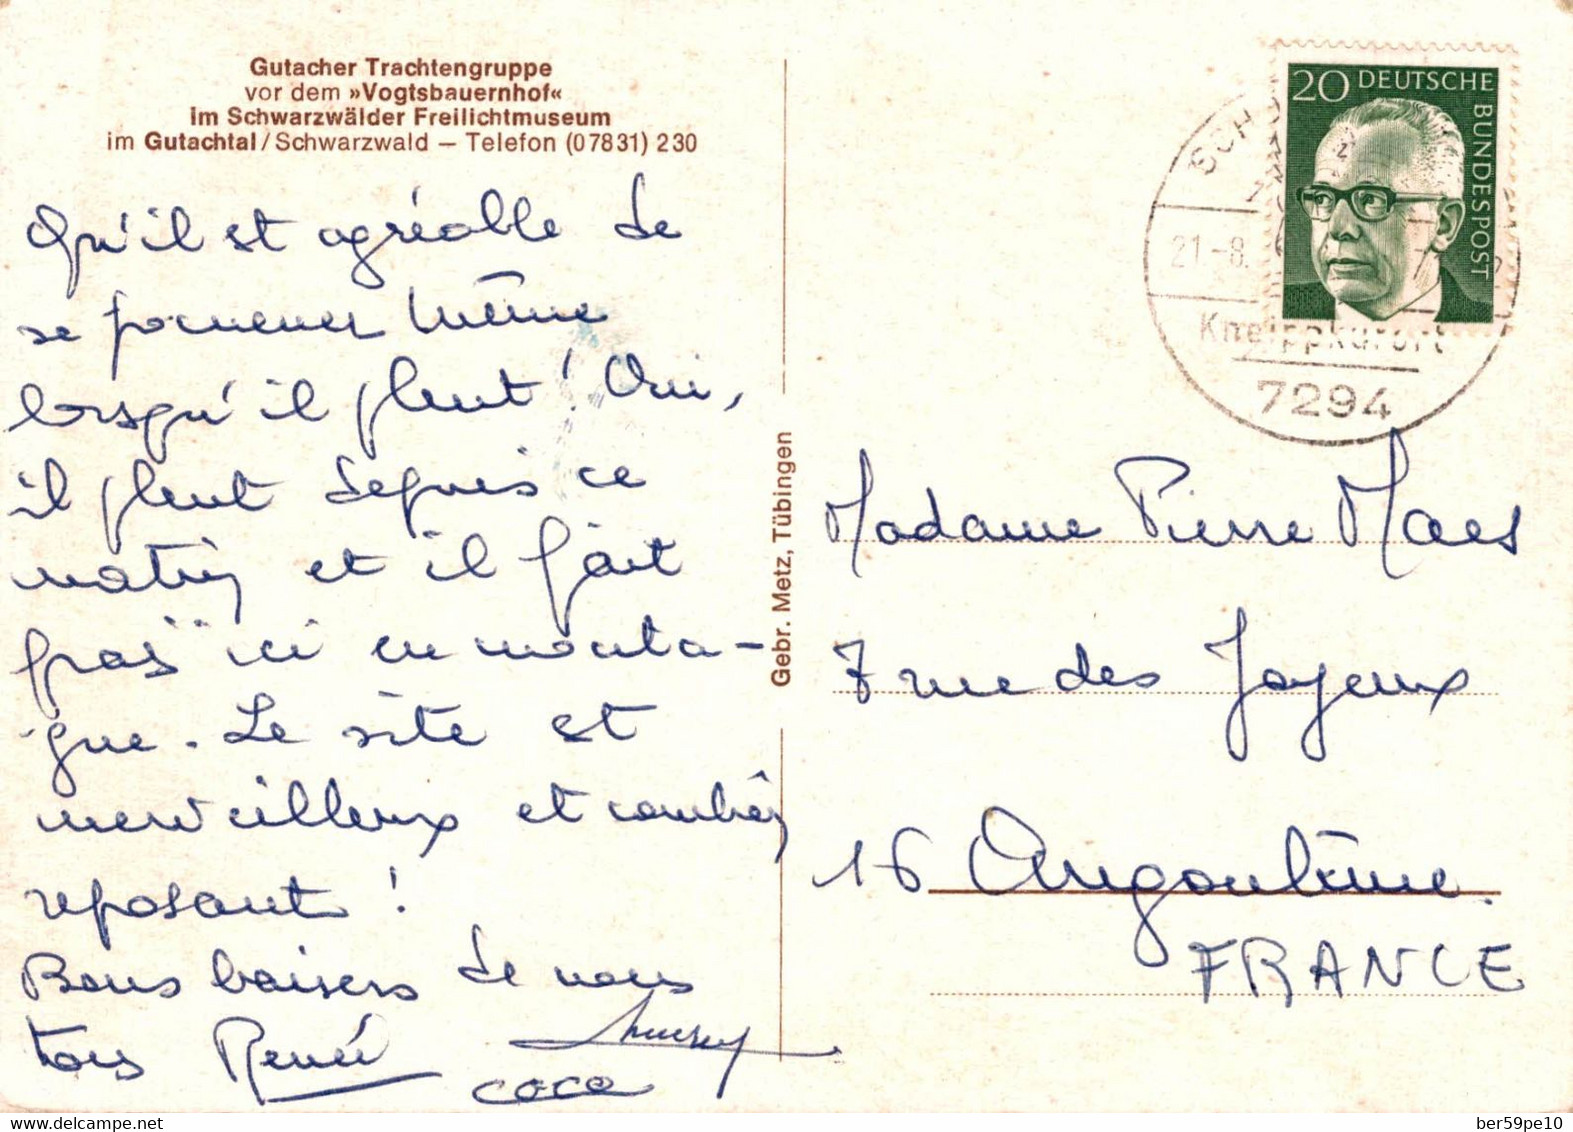 Gutacher Trachtengruppe
vor dem »Vogtsbauernhof«
im Schwarzwälder Freilichtmuseum
im Gutachtal/Schwarzwald — Telefon (07831) 230
Qu'il est agréable de
se promener même
lorsqu'il pleut! Oui,
il pleut depuis ce
matin et il fait
"gras" ici en monta-
gne. Le site est
merveilleux et combien
reposant!
Bons baisers de nous
tous Renée
coco
Gebr. Metz, Tübingen
20 DEUTSCHE
BUNDESPOST
SCH
21.-8.
Kneippkurort
7294
Madame Pierre Maes
7 rue des Joyeux
16 Angoulême
FRANCE
delcampe.net
ber59pe10